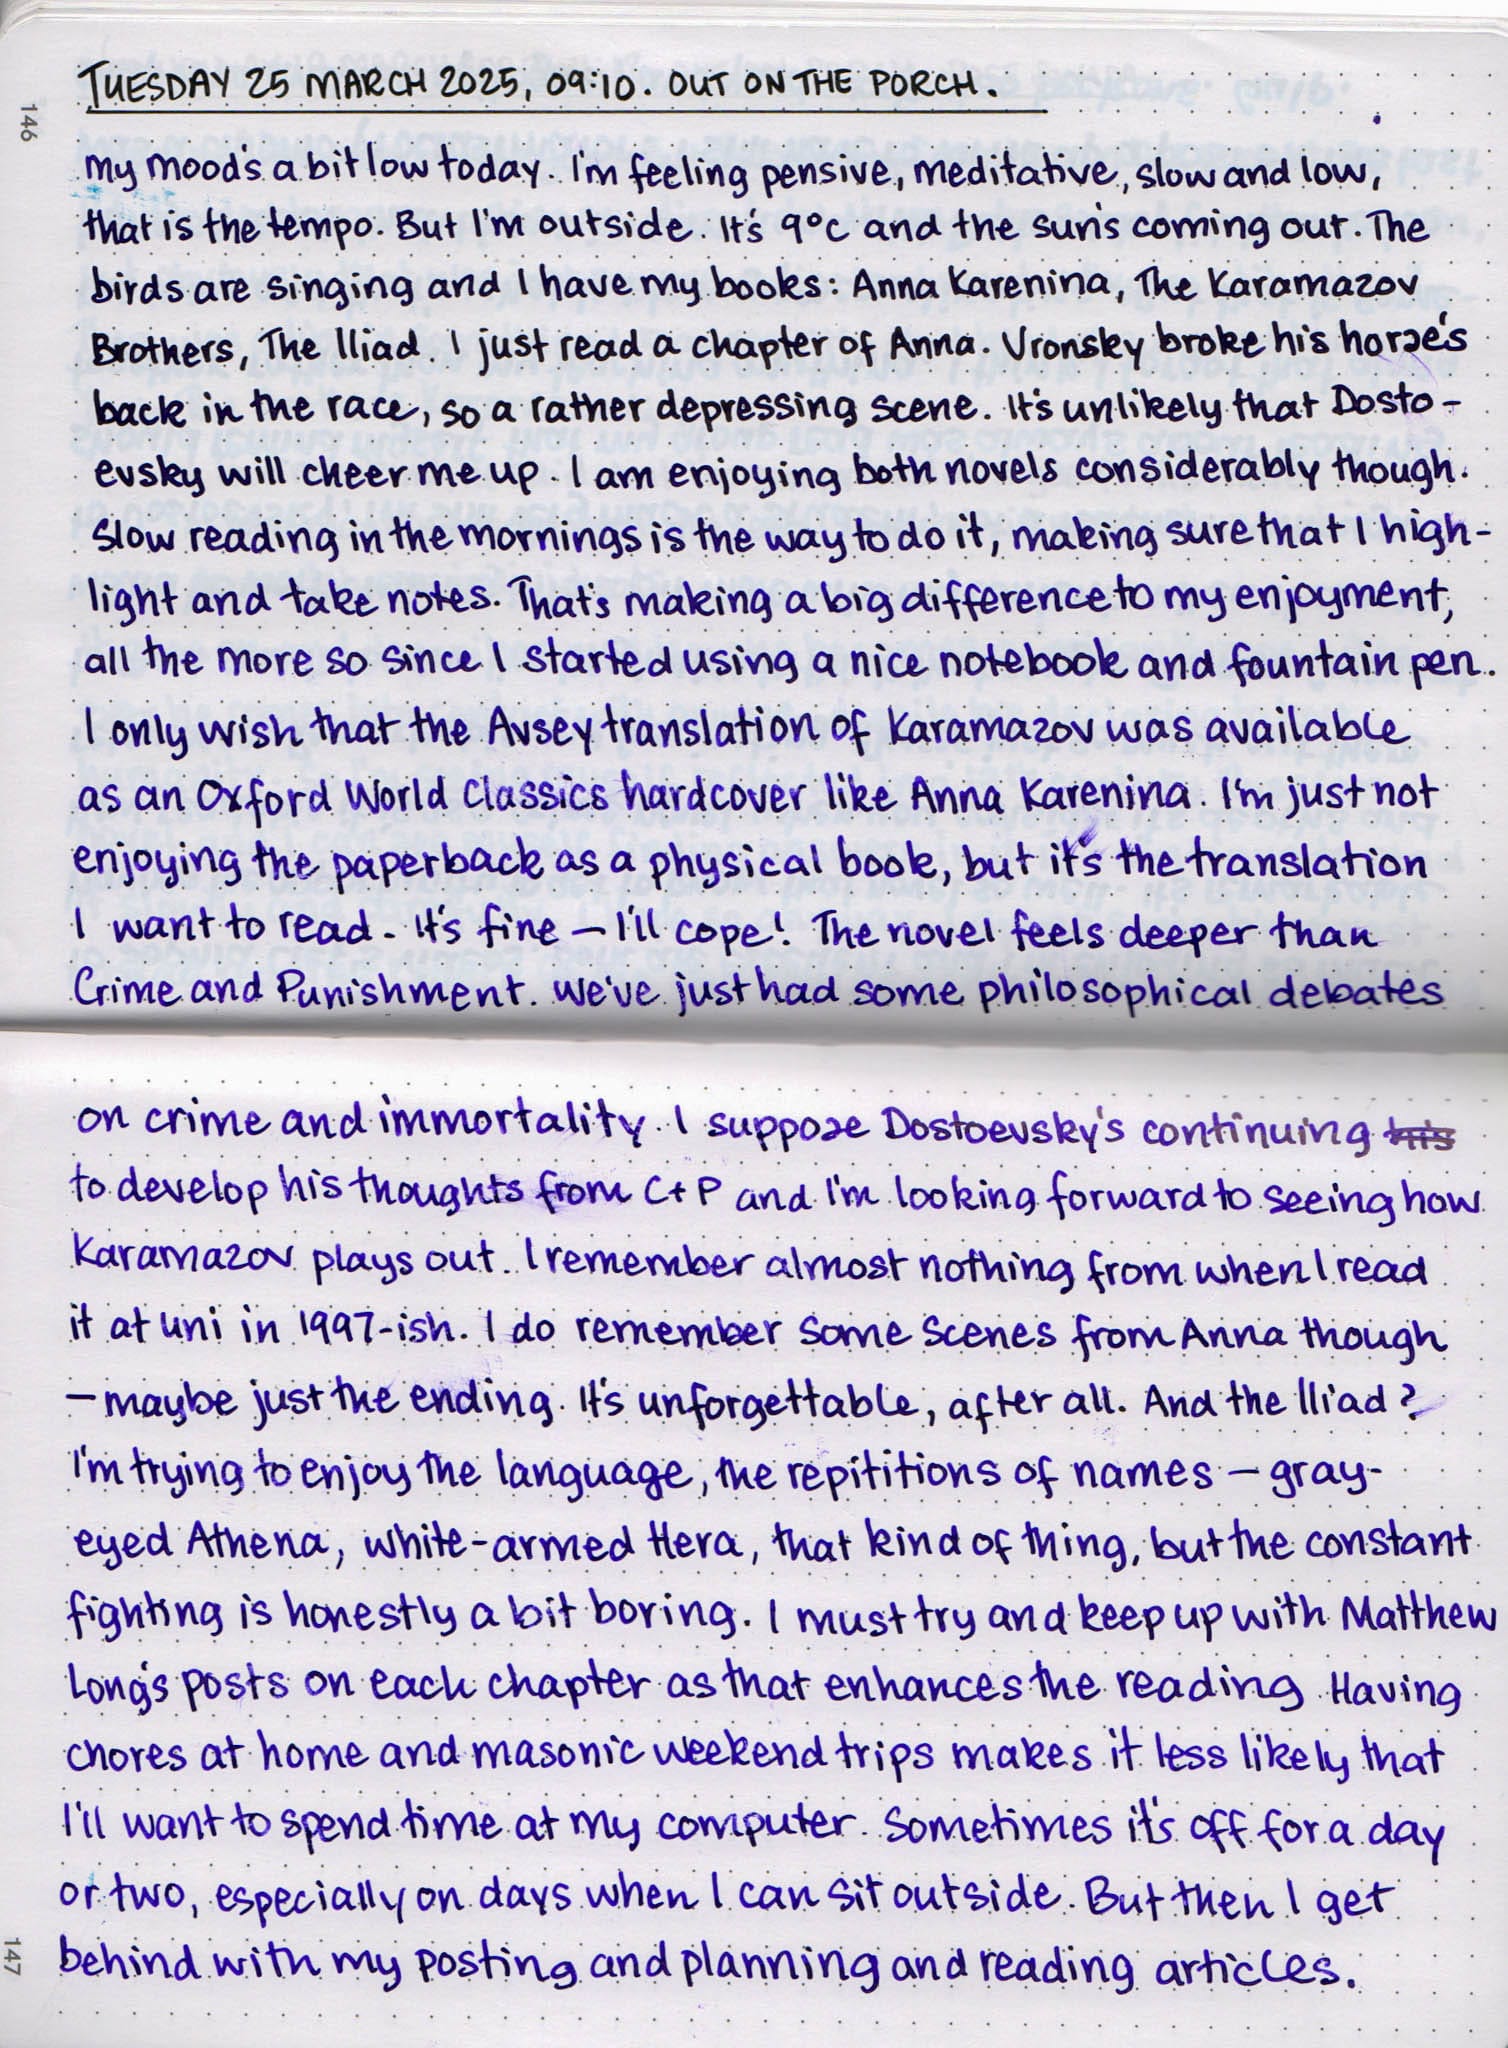 146
TUESDAY 25 MARCH 2025, 09:10. OUT ON THE PORCH.
My mood's a bit low today. I'm feeling pensive, meditative, slow and low,
that is the tempo. But I'm outside. It's 9°C and the sun's coming out. The
birds are singing and I have my books: Anna Karenina, The Karamazov
Brothers, The Iliad. I just read a chapter of Anna. Vronsky broke his horse's
back in the race, so a rather depressing scene. It's unlikely that Dosto-
evsky will cheer me up. I am enjoying both novels considerably though.
Slow reading in the mornings is the way to do it, making sure that I high-
light and take notes. That's making a big difference to my enjoyment,
all the more so since I started using a nice notebook and fountain pen.
I only wish that the Avsey translation of Karamazov was available
as an Oxford World Classics hardcover like Anna Karenina. I'm just not
enjoying the paperback as a physical book, but it's the translation
I want to read. It's fine – I'll cope! The novel feels deeper than
Crime and Punishment. We've just had some philosophical debates
on crime and immortality. I suppose Dostoevsky's continuing his
to develop his thoughts from C+P and I'm looking forward to seeing how
Karamazov plays out. I remember almost nothing from when I read
it at uni in 1997-ish. I do remember some scenes from Anna though
– maybe just the ending. It's unforgettable, after all. And the Iliad?
I'm trying to enjoy the language, the repititions of names – gray-
eyed Athena, white-armed Hera, that kind of thing, but the constant
fighting is honestly a bit boring. I must try and keep up with Matthew
Long's posts on each chapter as that enhances the reading. Having
chores at home and masonic weekend trips makes it less likely that
I'll want to spend time at my computer. Sometimes it's off for a day
or two, especially on days when I can sit outside. But then I get
behind with my posting and planning and reading articles.
147